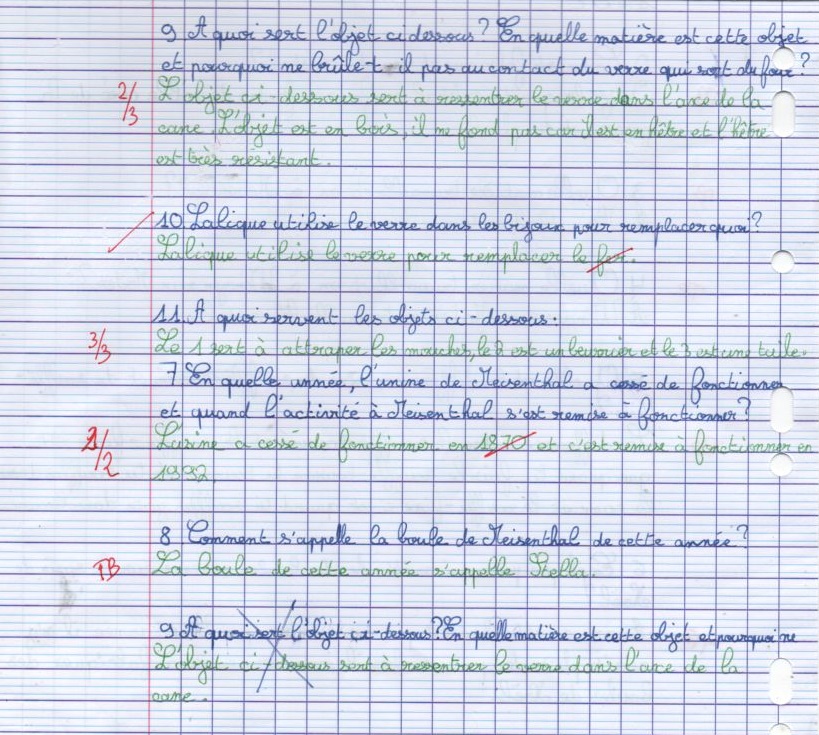 9 A quoi sert l'objet ci dessous ? En quelle matière est cette objet
et pourquoi ne brûle-t-il pas au contact du verre qui sort du four ?
2/3
L'objet ci-dessous sert à ressentrer le verre dans l'axe de la
cane. L'objet est en bois, il ne fond pas car il est en hêtre et l'hêtre
est très résistant.
10 Lalique utilise le verre dans les bijoux pour remplacer quoi ?
Lalique utilise le verre pour remplacer le fer.
11. A quoi servent les objets ci-dessous :
3/3
Le 1 sert à attraper les mouches, le 2 est un beurrier et le 3 est une tuile.
7 En quelle année, l'unine de Meisenthal a cessé de fonctionner
et quand l'activité à Meisenthal s'est remise à fonctionner ?
1/2
L'usine a cessé de fonctionner en 1870 et c'est remise à fonctionner en
1992.
8 Comment s'appelle la boule de Meisenthal de cette année ?
TB
La boule de cette année s'appelle Stella.
9 A quoi sert l'objet ci-dessous ? En quelle matière est cette objet et pourquoi ne
L'objet ci-dessous sert à ressentrer le verre dans l'axe de la
cane.